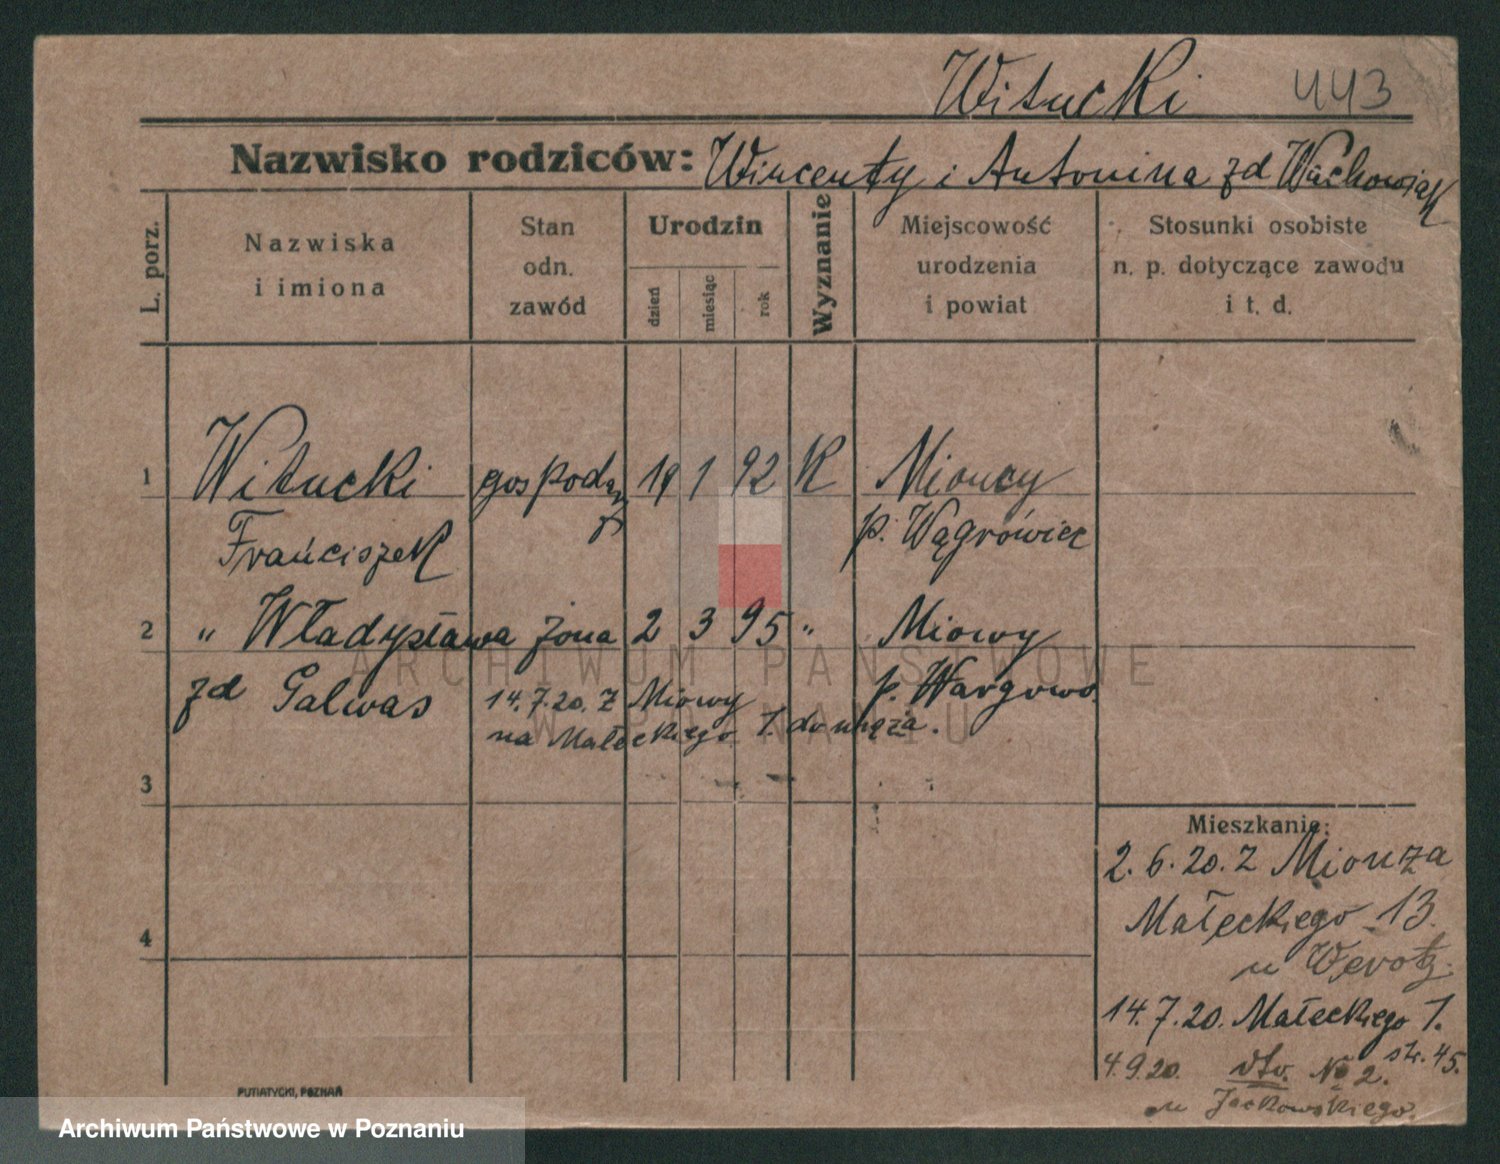 Witucki 443
Nazwisko rodziców: Wincenty i Antonina zd Wachowiak
L. porz.
Nazwiska
i imiona
Stan
odn.
zawód
Urodzin
dzień
miesiąc
rok
Wyznanie
Miejscowość
urodzenia
i powiat
Stosunki osobiste
n. p. dotyczące zawodu
i t. d.
1 Witucki gospodarz 19 1 92 K
Franciszek p. Wągrówiec
2 " Władysława żona 2 3 95 " Miowy
zd Galwas p. Wargowo
14.7.20. z Miowy
na Małeckiego 1. do męża.
3
4
Mieszkanie:
2.6.20. z
Małeckiego 13.
u
14.7.20. Małeckiego 1.
str. 45.
4.9.20. dto. No 2.
u Jackowskiego.
PUTIATYCKI, POZNAŃ
ARCHIWUM PAŃSTWOWE
W POZNANIU
Archiwum Państwowe w Poznaniu